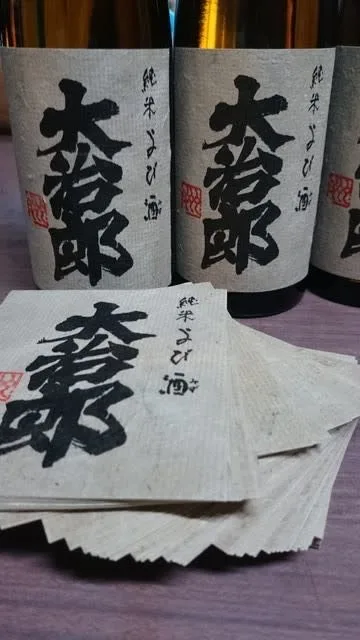 純米 よび酒
大治郎
純米 よび酒
大治郎
純米 よび酒
大治郎